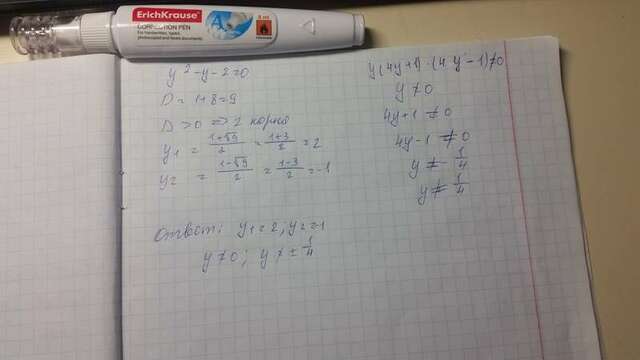 ErichKrause
CORRECTION PEN
For handwritten, typed,
photocopied and faxed documents
8 ml
y² - y - 2 = 0
D = 1 + 8 = 9
D > 0 => 2 корня
y₁ = (1+√9)/2 = (1+3)/2 = 2
y₂ = (1-√9)/2 = (1-3)/2 = -1
Ответ: y₁ = 2; y₂ = -1
y ≠ 0; y ≠ ± 1/4
y(4y+1)·(4y-1) ≠ 0
y ≠ 0
4y+1 ≠ 0
4y-1 ≠ 0
y ≠ -1/4
y ≠ 1/4